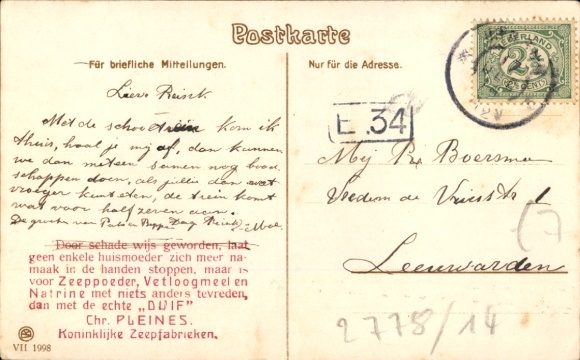 Postkarte
Für briefliche Mitteilungen.
Nur für die Adresse.
NEDERLAND
2½
CENT
Lieve Reisck.
Met de schooltrein kom ik
thuis, haal je mij af, dan kunnen
we dan meteen samen nog bood
schappen doen, als jullie dan wat
vroeger kunt eten, de trein komt
wat voor half zeven aan.
De groeten van
E 34
Mej B. Boersma
Vredem. de Vriesstr 1
(7
Leeuwarden
Door schade wijs geworden, laat
geen enkele huismoeder zich meer na-
maak in de handen stoppen, maar is
voor Zeeppoeder, Vetloogmeel en
Natrine met niets anders tevreden,
dan met de echte „DUIF"
Chr. PLEINES.
Koninklijke Zeepfabrieken.
2778/14
VII 1998